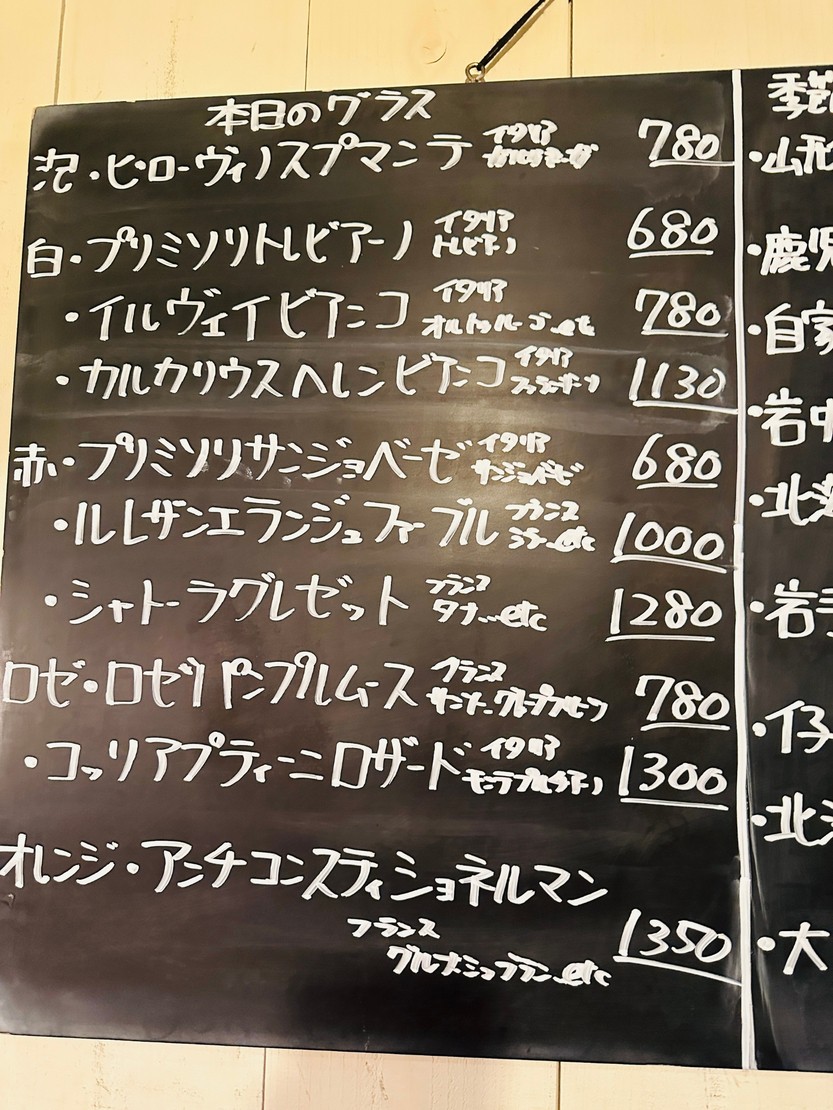 本日のグラス
泡・ピローヴィノスプマンテ イタリア 780
白・プリミソリトレビアーノ イタリア トレビアーノ 680
・イルヴェイビアンコ イタリア オルトゥルーゴ…etc 780
・カルカリウスヘレンビアンコ イタリア 1130
赤・プリミソリサンジョベーゼ イタリア サンジョベーゼ 680
・ルレザンエランジュフィーブル フランス シラー…etc 1000
・シャトーラグレゼット フランス タナ…etc 1280
ロゼ・ロゼパンプルムース フランス サンソー グレープフルーツ 780
・コッリアプティーニロザード イタリア モンテプルチアーノ 1300
オレンジ・アンチコンスティショネルマン
フランス
グルナッシュブラン…etc 1350
季節
・山形
・鹿児
・自家
・岩中
・北海
・岩手
・仔
・北海
・大